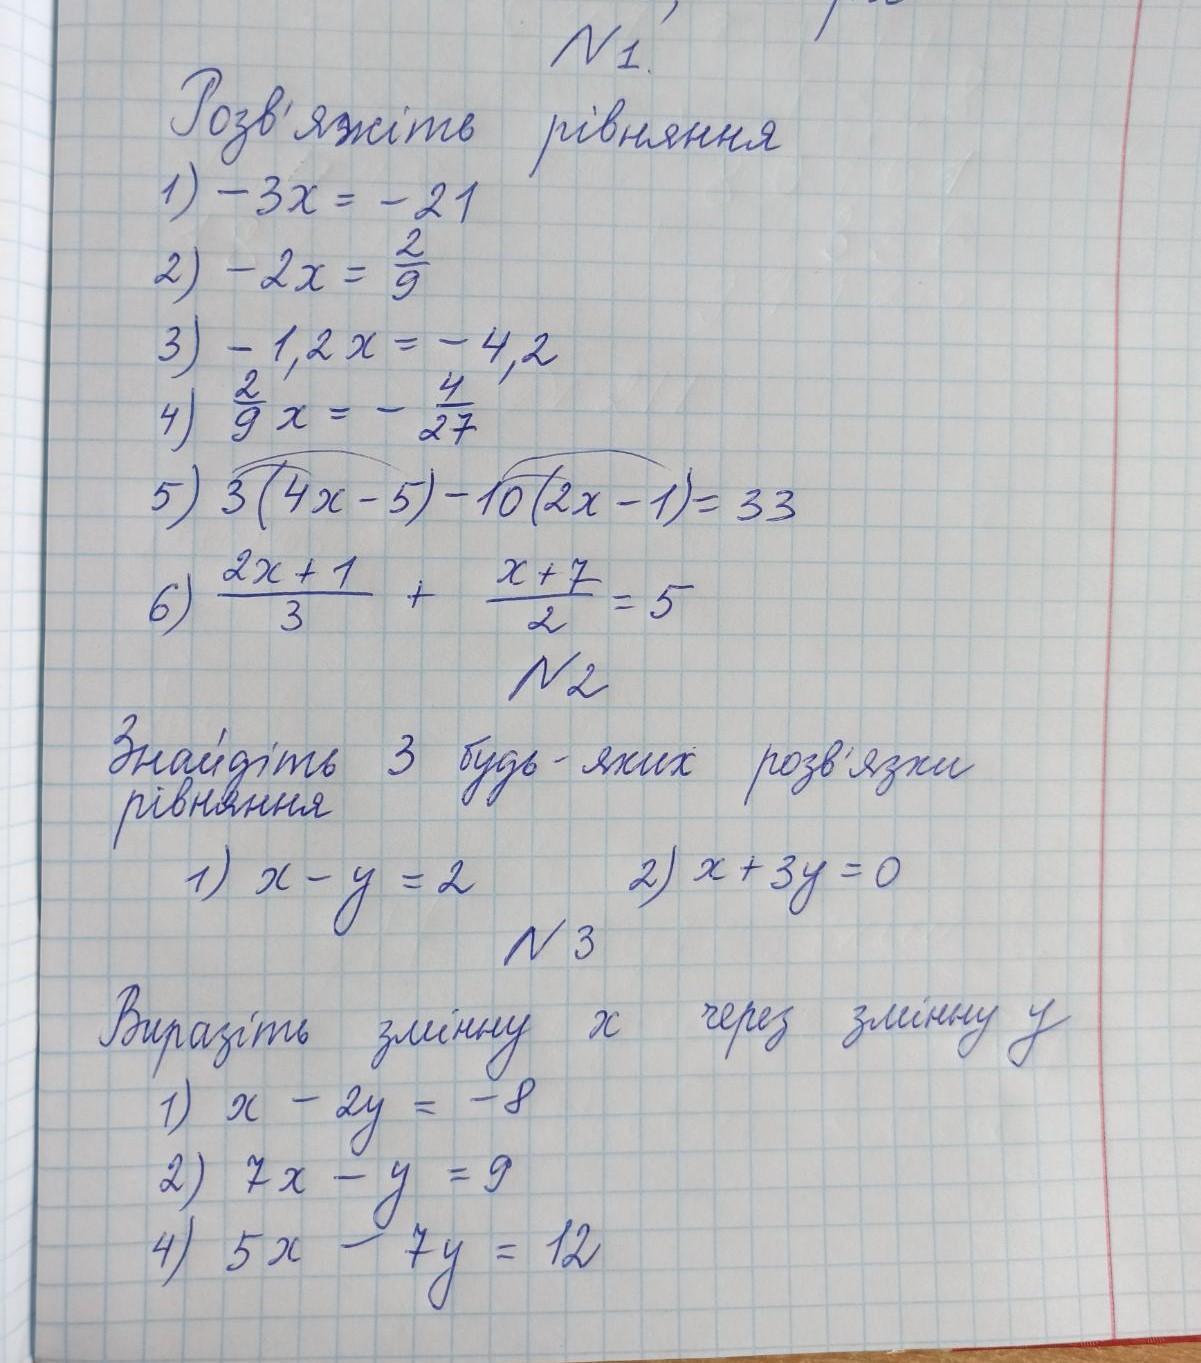 N1.
Розв'яжіть рівняння
1) -3x = -21
2) -2x = 2/9
3) -1,2x = -4,2
4) 2/9 x = - 4/27
5) 3(4x-5)-10(2x-1)=33
6) (2x+1)/3 + (x+7)/2 = 5
N2
Знайдіть 3 будь-яких розв'язки
рівняння
1) x-y=2 2) x+3y=0
N3
Виразіть змінну x через змінну y
1) x - 2y = -8
2) 7x - y = 9
4) 5x - 7y = 12